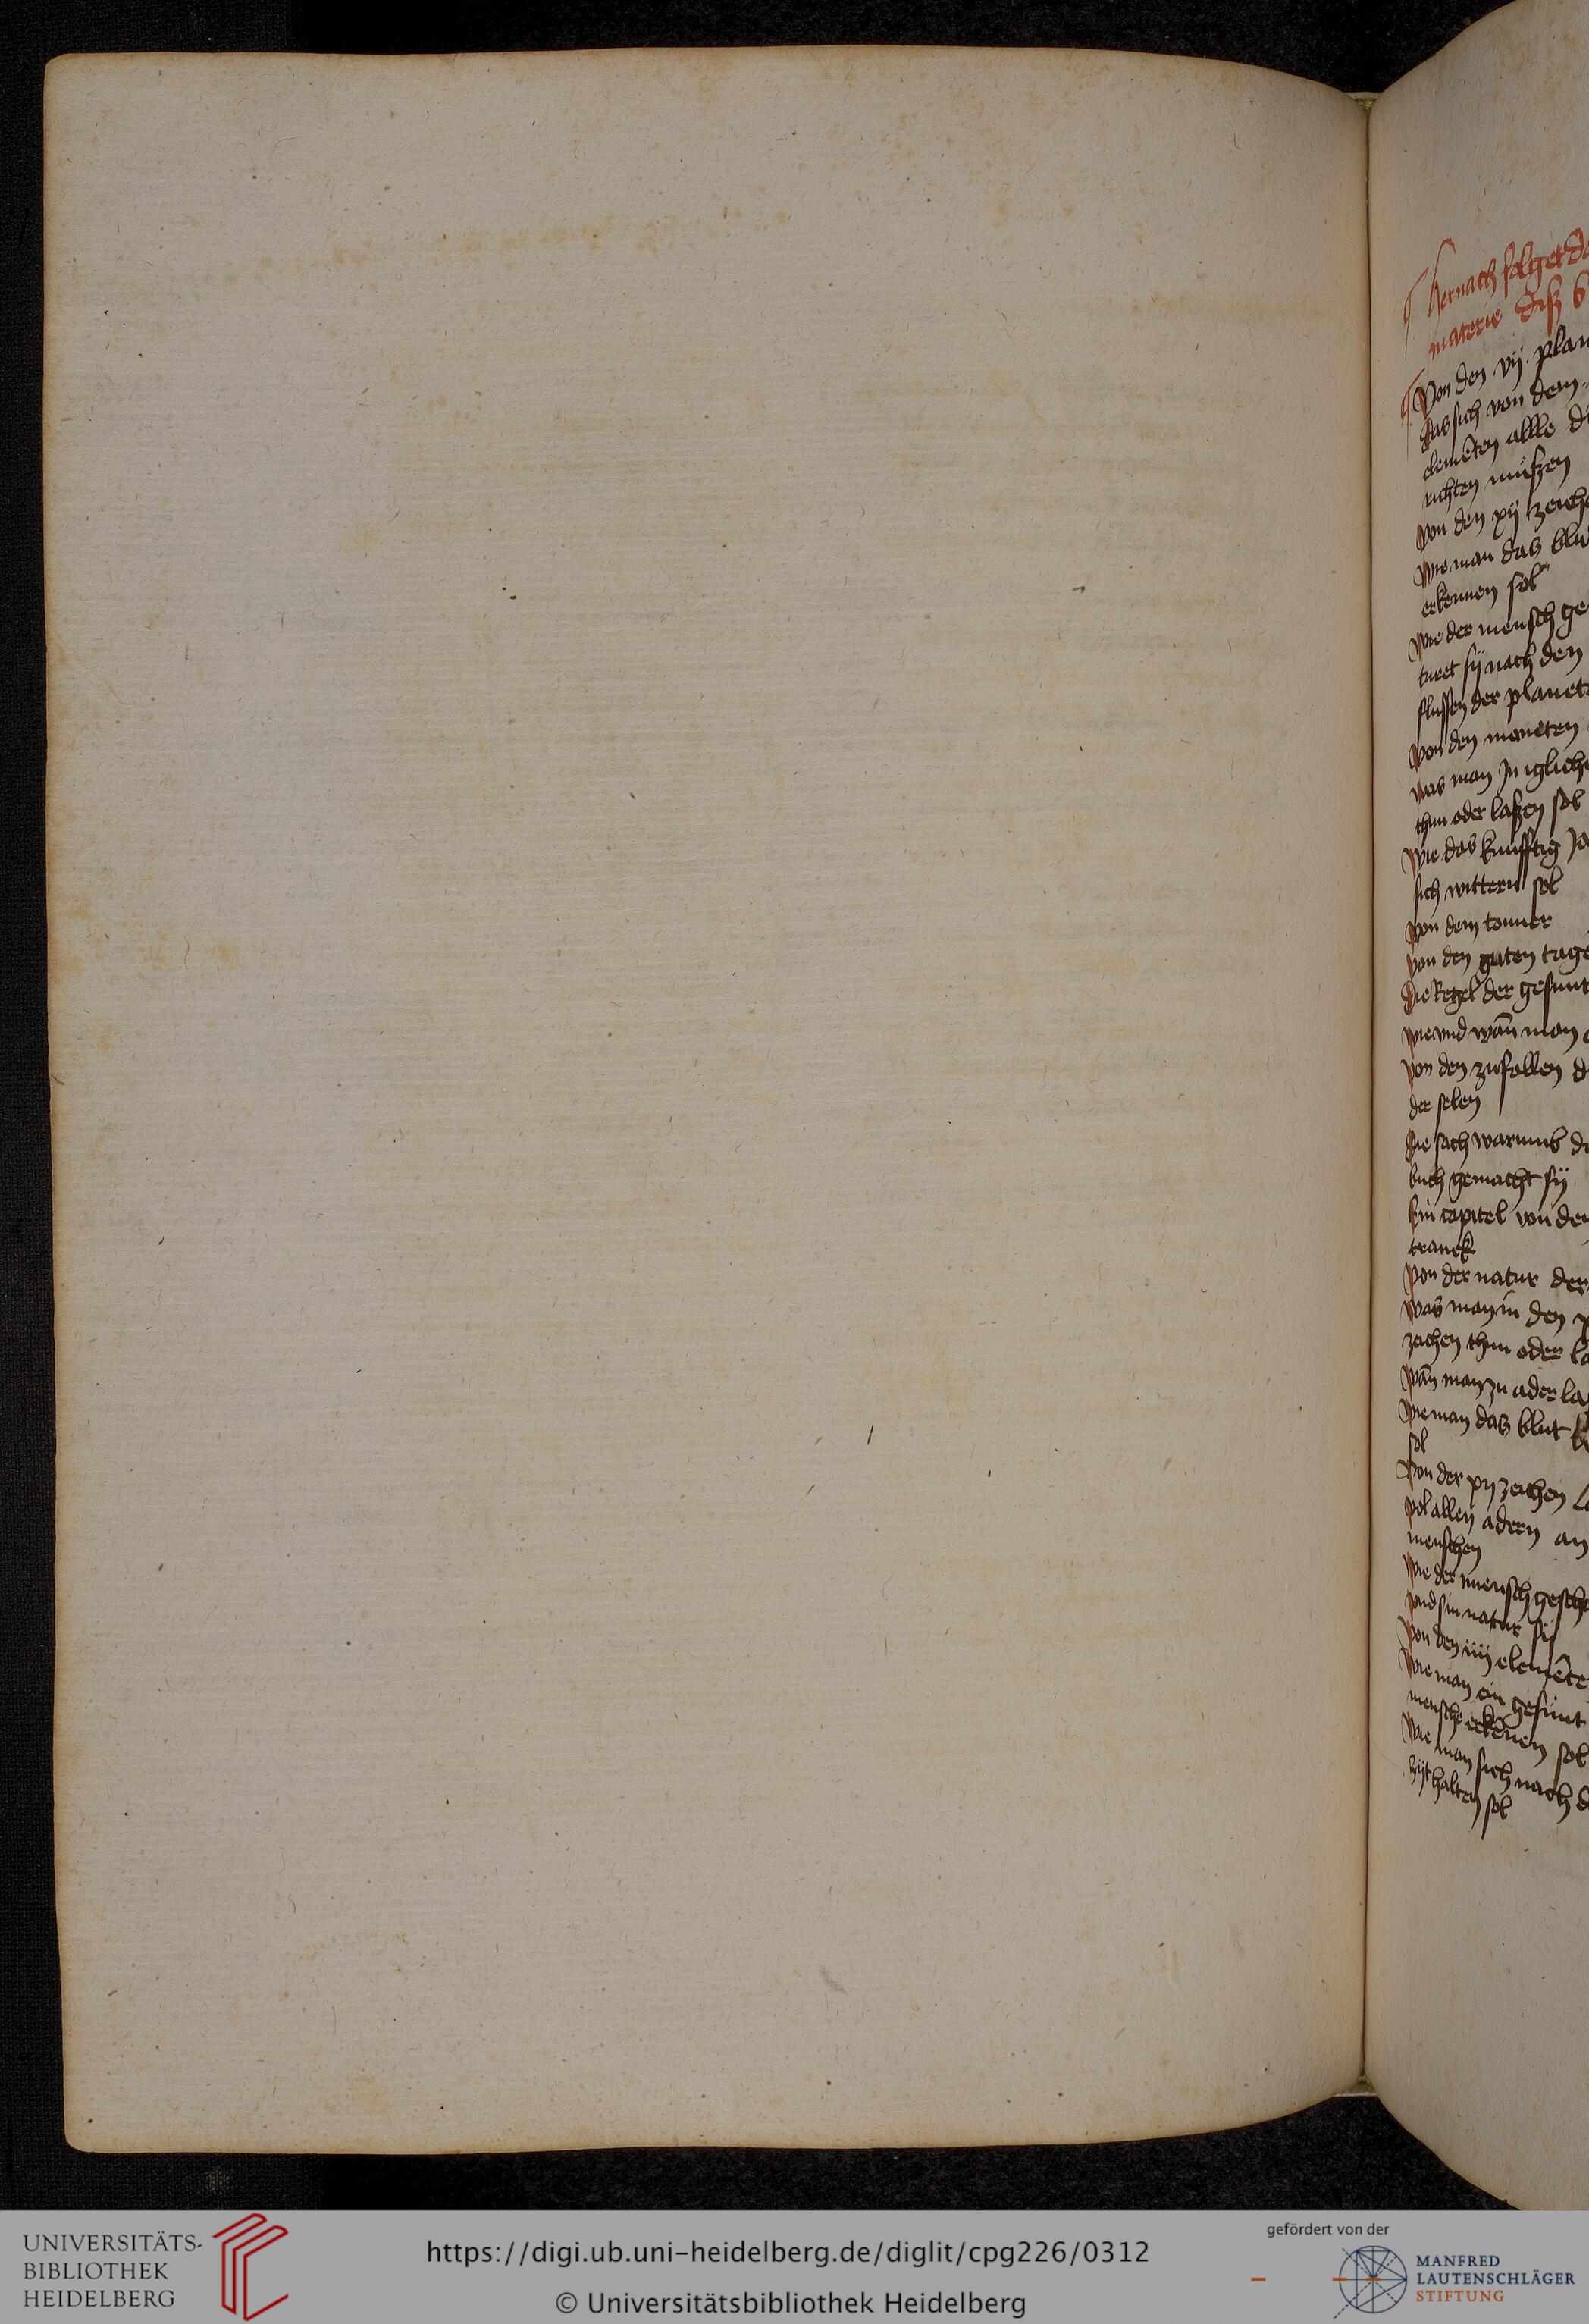 hernach folget da
materie diß b
Von den vij plan
das sich von dem
elemēten allle di
richten mußen
von den xij zeiche
wie man das blut
erkennen sol
wie der mensch ge
turet sij nach den
flussen der planete
von den moneten
was man in igliche
thun oder laßen sol
wie das kunfftig Ja
sich wittern sol
von dem tonner
von den guten tage
die Regel der gesunt
wie vnd wān man
von den zufallen d
der selen
die sach warumb di
buch gemacht sij
Ein capitel von den
tranck
von der natur der
was man in den x
zeichen thun oder la
wān man zu ader la
wie man das blut k
sol
Von der xij zeichen l
vol allen adern an
menschen
wie der mensch gesche
vnd sin natur sij
von den iiij elemēte
wie man ein gesunt
mensche erkēnen sol
wie man sich nach d
zijt halten sol
UNIVERSITÄTS-
BIBLIOTHEK
HEIDELBERG
https://digi.ub.uni-heidelberg.de/diglit/cpg226/0312
© Universitätsbibliothek Heidelberg
gefördert von der
MANFRED
LAUTENSCHLÄGER
STIFTUNG